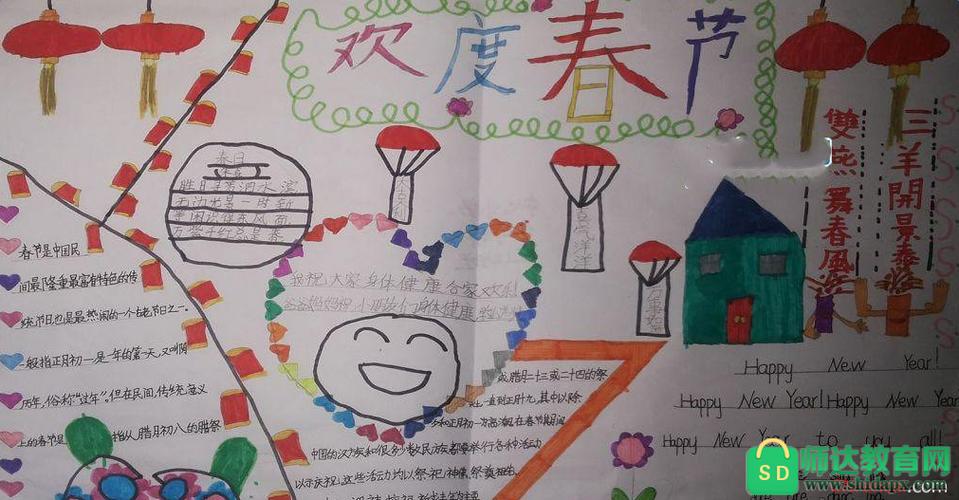 欢度春节
三羊開景泰
雙燕舞春風
春日
胜日寻芳泗水滨
无边光景一时新
等闲识得东风面
万紫千红总是春
大吉大利
喜气洋洋
万事如意
春节是中国民
间最隆重最富有特色的传
统节日也是最热闹的一个古老节日之一。
一般指正月初一是一年的第一天,又叫阴
历年,俗称“过年”。但在民间,传统意义
上的春节是指从腊月初八的腊祭
或腊月二十三或二十四的祭
灶,一直到正月十九,其中以除
夕和正月初一为高潮在春节期间
中国的汉族和很多少数民族都要举行各种活动
以示庆祝,这些活动均以祭祀神佛、祭奠祖先、
我祝大家身体健康合家欢乐
身体健康
Happy New Year!
Happy New Year! Happy New Year
Happy New Year to you all!
师达教育网
www.shidapx.com
SD